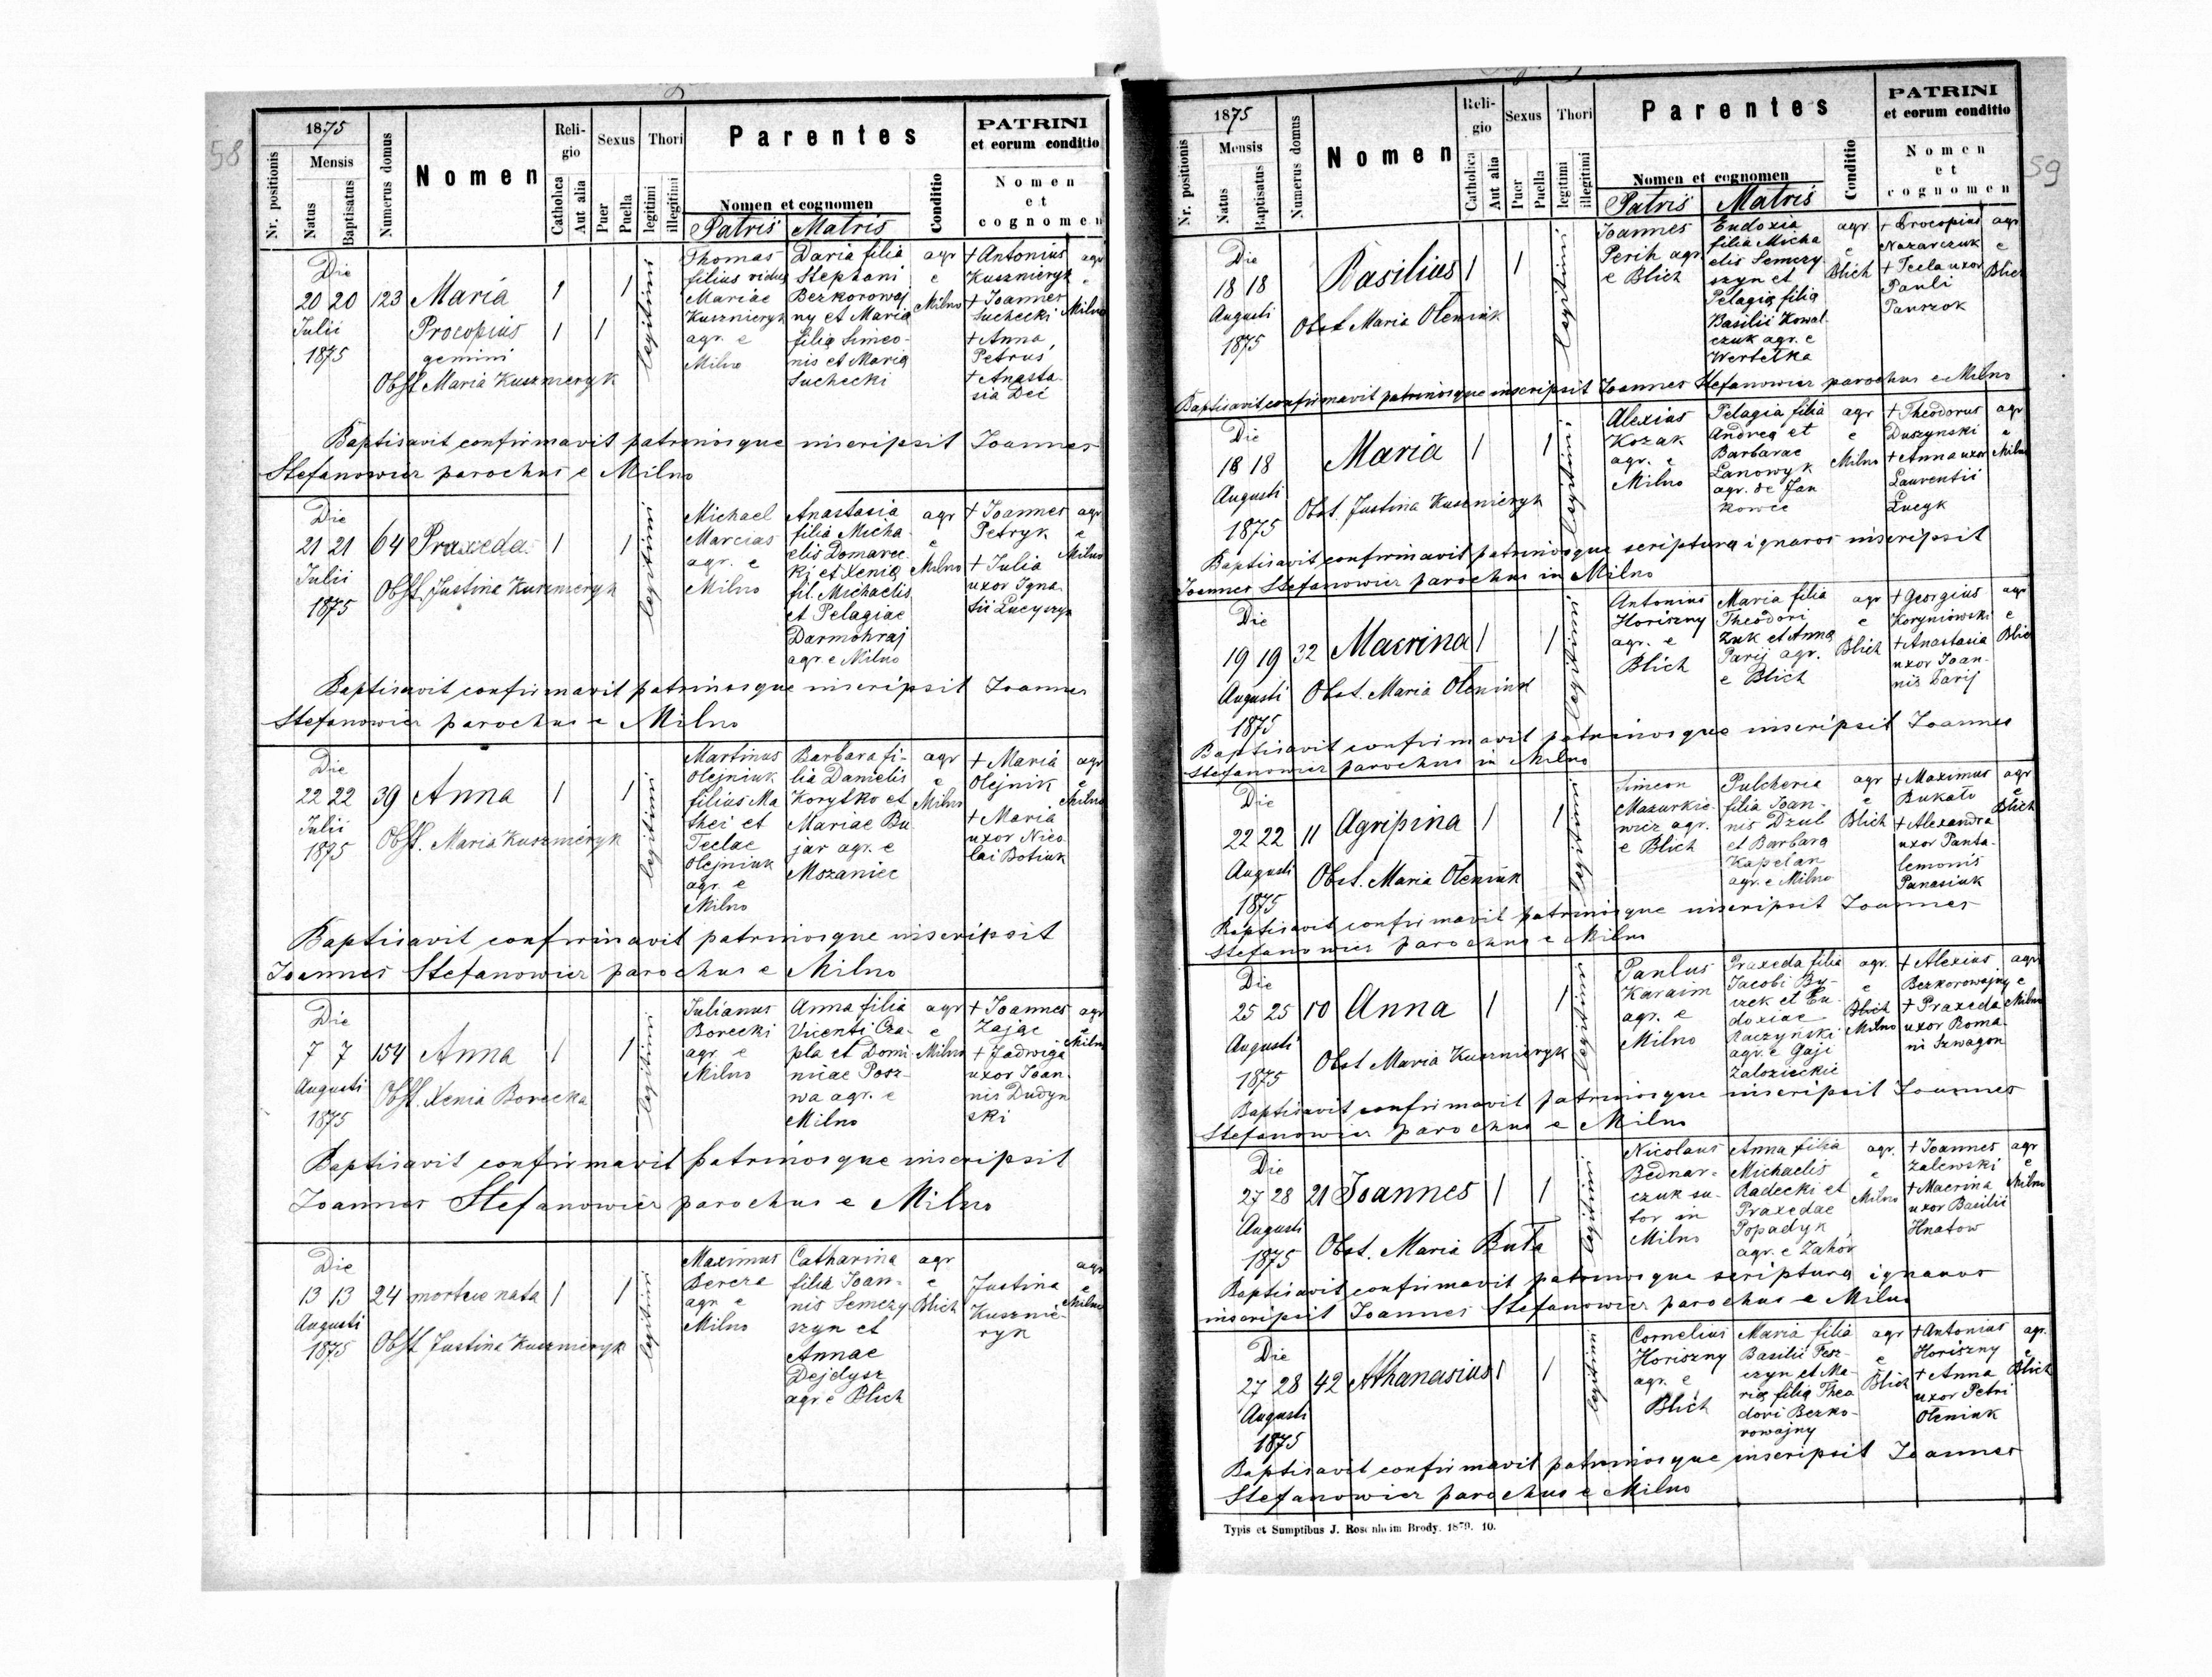 58
1875
Nr. positionis
Mensis
Natus
Baptisatus
Numerus domus
Nomen
Religio
Catholica
Aut alia
Sexus
Puer
Puella
Thori
legitimi
illegitimi
Parentes
Nomen et cognomen
Patris Matris
Conditio
PATRINI
et eorum conditio
Nomen
et
cognomen
Die
20 20 123 Maria 1 1
Julii
1875
Procopius 1 1
gemini
Obst. Maria Kuszmeryk
legitimi
Thomas
filius vidu
Mariae
Kusznieryk
agr. e
Milno
Daria filia
Stephani
Bezkorowaj
ny et Maria
filia Simeo-
nis et Maria
Suchecki
agr
e
Milno
+ Antonius
Kusznieryk
+ Joannes
Suchecki
+ Anna
Petrus
+ Anasta
sia Dei
agr
e
Milno
Baptisavit confirmavit patrinosque inscripsit Joannes
Stefanowicz parochus e Milno
Die
21 21 64 Praxeda 1 1
Julii
1875
Obst. Justina Kuszmeryk
legitimi
Michael
Marcias
agr. e
Milno
Anastasia
filia Micha
elis Domarec
ki et Xenia
fil. Michaelis
et Pelagiae
Darmohraj
agr. e Milno
agr
e
Milno
+ Joannes
Petryk
+ Julia
uxor Igna
tii Lucyszyn
agr
e
Milno
Baptisavit confirmavit patrinosque inscripsit Joannes
Stefanowicz parochus e Milno
Die
22 22 39 Anna 1 1
Julii
1875
Obst. Maria Kuszmeryk
legitimi
Martinus
Olejniuk
filius Ma
thei et
Teclae
Olejniuk
agr. e
Milno
Barbara fi-
lia Danielis
Korytko et
Mariae Bu
jar agr. e
Mszaniec
agr
e
Milno
+ Maria
Olejnik
+ Maria
uxor Nico
lai Botiuk
agr
e
Milno
Baptisavit confirmavit patrinosque inscripsit
Joannes Stefanowicz parochus e Milno
Die
7 7 154 Anna 1 1
Augusti
1875
Obst. Xenia Borecka
legitimi
Julianus
Borecki
agr. e
Milno
Anna filia
Vicenti Cza-
pla et Domi
nicae Posz-
wa agr. e
Milno
agr
e
Milno
+ Joannes
Zając
+ Jadwiga
uxor Joan-
nis Dudyn
ski
agr
e
Milno
Baptisavit confirmavit patrinosque inscripsit
Joannes Stefanowicz parochus e Milno
Die
13 13 24 mortue nata 1 1
Augusti
1875
Obst. Justina Kuszmeryk
legitimi
Maximus
Bereza
agr. e
Milno
Catharina
filia Joan-
nis Semczy
szyn et
Annae
Dejdysz
agr e Blich
agr
e
Blich
Justina
Kusznie-
ryk
agr
e
Milno
59
1875
Nr. positionis
Mensis
Natus
Baptisatus
Numerus domus
Nomen
Religio
Catholica
Aut alia
Sexus
Puer
Puella
Thori
legitimi
illegitimi
Parentes
Nomen et cognomen
Patris Matris
Conditio
PATRINI
et eorum conditio
Nomen
et
cognomen
Die
18 18 Basilius 1 1
Augusti
1875
Obst Maria Oleniuk
legitimi
Joannes
Perih agr
e Blich
Eudoxia
filia Micha
elis Semczy
szyn et
Pelagia filia
Basilii Kowal
czuk agr. e
Wertelka
agr
e
Blich
+ Procopius
Nazarczuk
+ Tecla uxor
Pauli
Panszok
agr
e
Blich
Baptisavit confirmavit patrinosque inscripsit Joannes Stefanowicz parochus e Milno
Die
18 18 Maria 1 1
Augusti
1875
Obst. Justina Kusznieryk
legitimi
Alexius
Kozak
agr. e
Milno
Pelagia filia
Andrea et
Barbarae
Lanowyk
agr. de Jan
kowce
agr
e
Milno
+ Theodorus
Duszynski
+ Anna uxor
Laurentii
Lucyk
agr
e
Milno
Baptisavit confirmavit patrinosque scriptura ignaros inscripsit
Joannes Stefanowicz parochus in Milno
Die
19 19 32 Macrina 1 1
Augusti
1875
Obst. Maria Oleniuk
legitimi
Antonius
Horiszny
agr. e
Blich
Maria filia
Theodori
Zuk et Anna
Parij agr.
e Blich
agr
e
Blich
+ Georgius
Koryniowski
+ Anastasia
uxor Joan-
nis Parij
agr
e
Blich
Baptisavit confirmavit patrinosque inscripsit Joannes
Stefanowicz parochus in Milno
Die
22 22 11 Agripina 1 1
Augusti
1875
Obst. Maria Oleniuk
legitimi
Simeon
Mazurkie-
wicz agr.
e Blich
Pulcheria
filia Joan-
nis Dzul
et Barbara
Kapelan
agr. e Milno
agr
e
Blich
+ Maximus
Bukato
+ Alexandra
uxor Panta-
lemonis
Panasiuk
agr
e
Blich
Baptisavit confirmavit patrinosque inscripsit Joannes
Stefanowicz parochus e Milno
Die
25 25 10 Anna 1 1
Augusti
1875
Obst Maria Kusznieryk
legitimi
Paulus
Karaim
agr. e
Milno
Praxeda filia
Jacobi Bu-
czek et Eu-
doxiae
Raczynski
agr. e Gaji
Zalozieckie
agr.
e
Blich
Milno
+ Alexius
Bezkorowajny
+ Praxeda
uxor Roma-
ni Szwagon
agr
e
Milno
Baptisavit confirmavit patrinosque inscripsit Joannes
Stefanowicz parochus e Milno
Die
27 28 21 Joannes 1 1
Augusti
1875
Obst. Maria Buta
legitimi
Nicolaus
Bednar-
czuk su-
tor in
Milno
Anna filia
Michaelis
Radecki et
Praxedae
Popadyk
agr. e Zahór
agr.
e
Milno
+ Joannes
Zalewski
+ Macrina
uxor Basilii
Hnatow
agr
e
Milno
Baptisavit confirmavit patrinosque scriptura ignaros
inscripsit Joannes Stefanowicz parochus e Milno
Die
27 28 42 Athanasius 1 1
Augusti
1875
legitimi
Cornelius
Horiszny
agr. e
Blich
Maria filia
Basilii Pesz-
czyn et Ma-
ria filia Theo
dori Bezko-
rowajny
agr
e
Blich
+ Antonius
Horiszny
+ Anna
uxor Petri
Oleniuk
agr.
e
Blich
Baptisavit confirmavit patrinosque inscripsit Joannes
Stefanowicz parochus e Milno
Typis et Sumptibus J. Rosenheim Brody. 1879. 10.